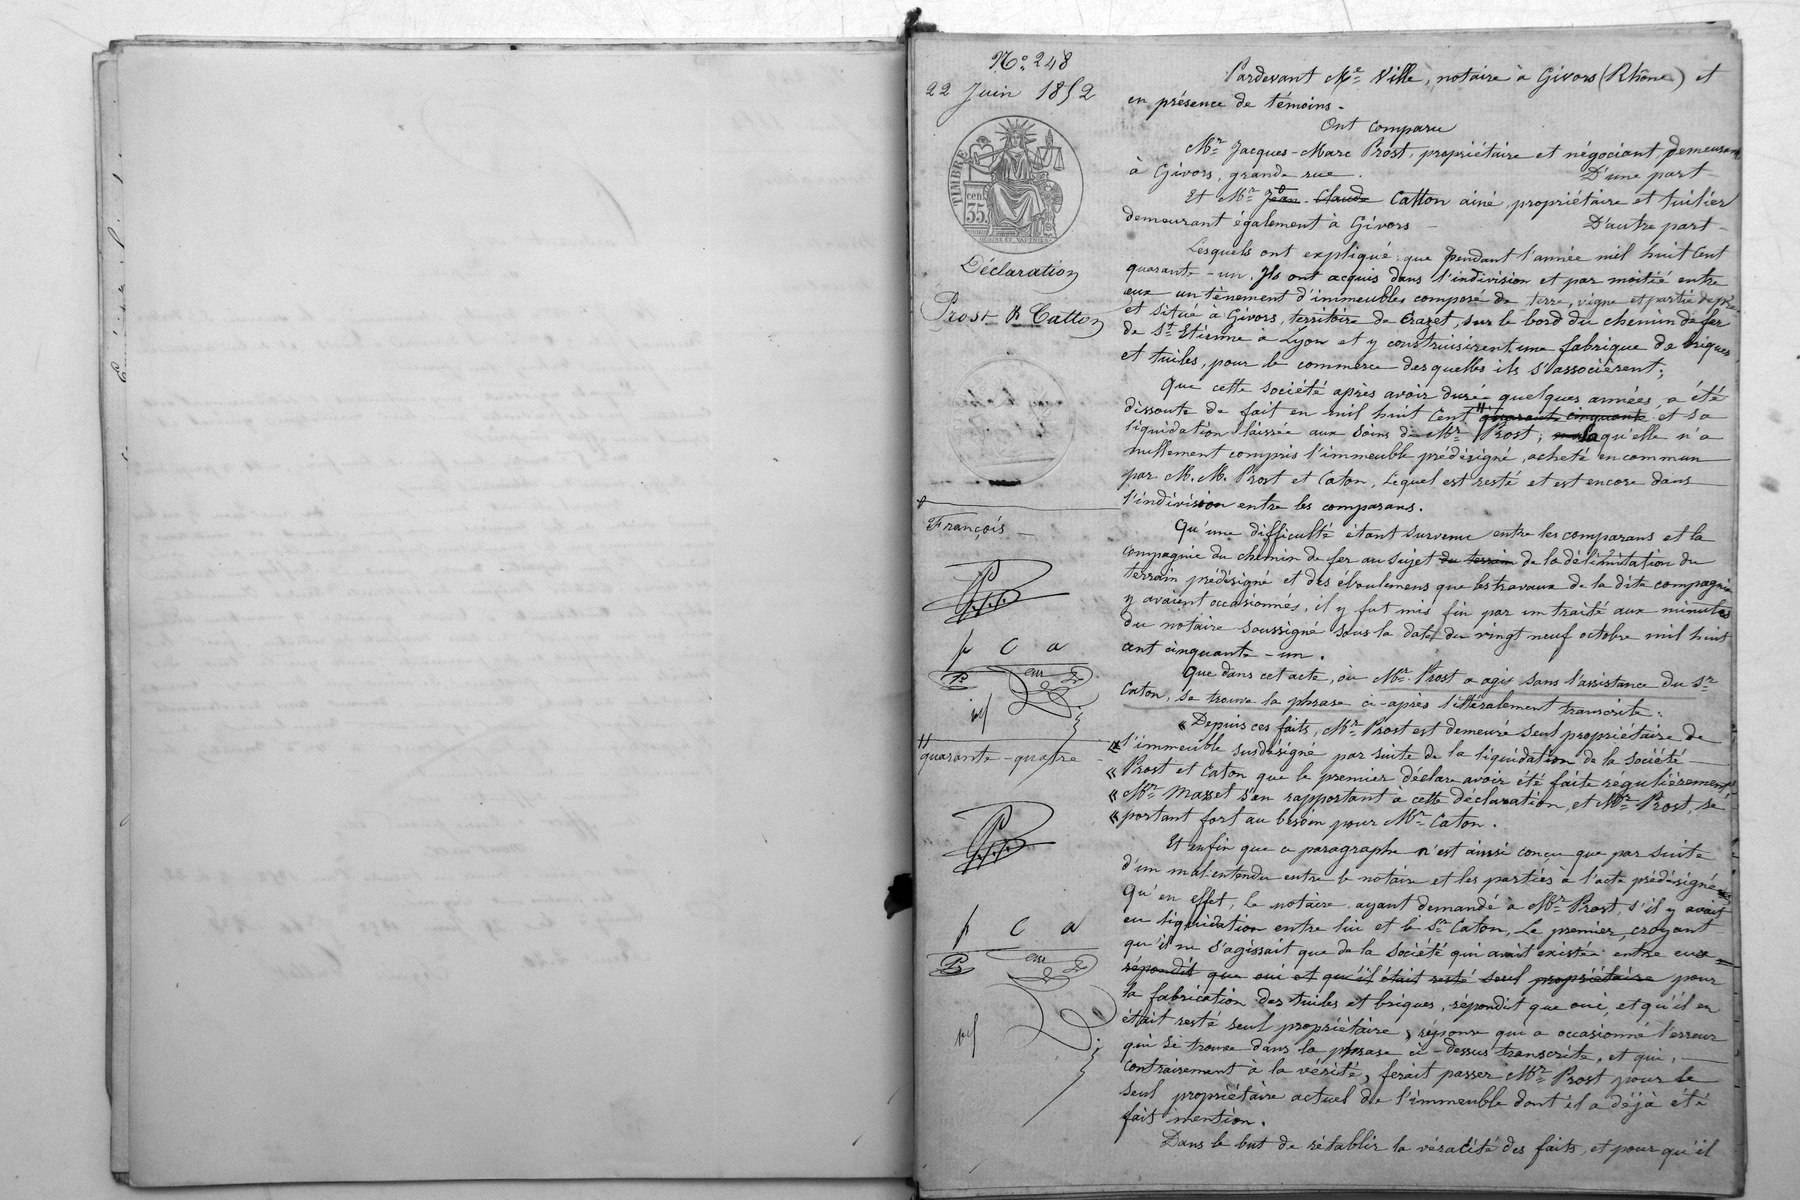 N.o 248
22 Juin 1852
TIMBRE
cen.
35
Déclaration
Prost & Catton
François
p c a
quarante-quatre
p c a
Pardevant Me Ville, notaire à Givors (Rhône) et
en présence de témoins.
Ont comparu
Mr Jacques-Marc Prost, propriétaire et négociant, demeurant
à Givors, grande rue. D'une part
Et Mr Jean Claude Catton ainé, propriétaire et tuilier
demeurant également à Givors D'autre part
Lesquels ont expliqué, que pendant l'année mil huit cent
quarante-un, Ils ont acquis dans l'indivision et par moitié entre
eux un tènement d'immeubles composé de terre, vigne et partie de pré
et situé à Givors, territoire de Crazet, sur le bord du chemin de fer
de St Etienne à Lyon et y construisirent une fabrique de briques
et tuiles, pour le commerce desquelles ils s'associèrent;
Que cette société après avoir durée quelques années, a été
dissoute de fait en mil huit cent quarante cinquante et sa
liquidation laissée aux soins de Mr Prost, la qu'elle n'a
nullement compris l'immeuble prédésigné, acheté en commun
par M. M. Prost et Caton, Lequel est resté et est encore dans
l'indivision entre les comparans.
Qu'une difficulté étant survenue entre les comparans et la
compagnie du chemin de fer au sujet du terrain de la délimitation du
terrain prédésigné et des éboulemens que les travaux de la dite compagnie
y avaient occasionnés, il y fut mis fin par un traité aux minutes
du notaire soussigné sous la date du vingt neuf octobre mil huit
cent cinquante-un.
Que dans cet acte, où Mr Prost a agis sans l'assistance du Sr
Caton, se trouve la phrase ci-après littéralement transcrite:
« Depuis ces faits, Mr Prost est demeuré seul propriétaire de
« l'immeuble susdésigné par suite de la liquidation de la société
« Prost et Caton que le premier déclare avoir été faite régulièrement
« Mr Masset s'en rapportant à cette déclaration, et Mr Prost, se
« portant fort au besoin pour Mr Caton.
Et enfin que ce paragraphe n'est ainsi conçu que par suite
d'un mal-entendu entre le notaire et les parties à l'acte prédésigné
Qu'en effet, Le notaire, ayant demandé à Mr Prost, s'il y avait
eu liquidation entre lui et le Sr Caton, Le premier, croyant
qu'il ne s'agissait que de la société qui avait existée entre eux
répondit que oui et qu'il était resté seul propriétaire pour
la fabrication des tuiles et briques, répondit que oui, et qu'il en
était resté seul propriétaire; réponse qui a occasionné l'erreur
qui se trouve dans la phrase ci-dessus transcrite, et qui,
contrairement à la vérité, ferait passer Mr Prost pour le
seul propriétaire actuel de l'immeuble dont il a déjà été
fait mention.
Dans le but de rétablir la véracité des faits, et pour qu'il